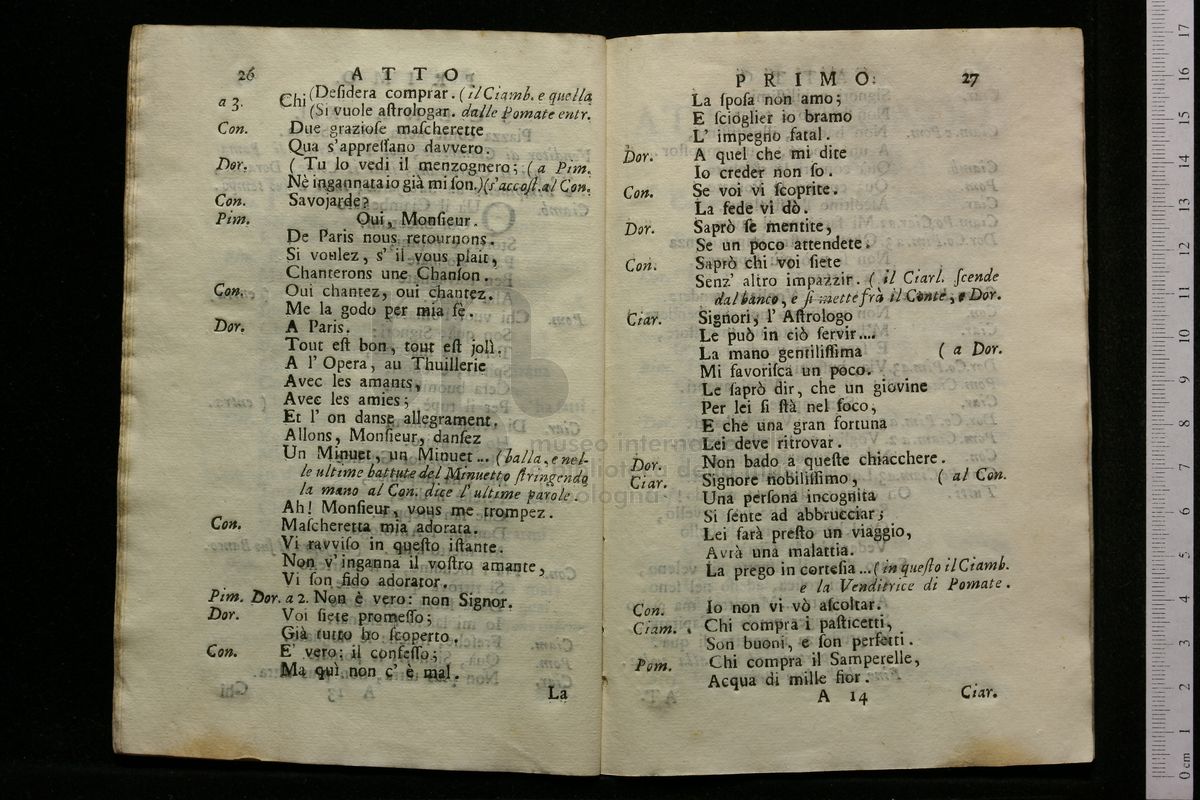 26 ATTO
a 3. Chi (Desidera comprar. (il Ciamb. e quella
(Si vuole astrologar. dalle Pomate entr.
Con. Due graziose mascherette
Qua s'appressano davvero.
Dor. (Tu lo vedi il menzognero; (a Pim.
Nè ingannata io già mi son.)(s'accost. al Con.
Con. Savojarde?
Pim. Oui, Monsieur.
De Paris nous retournons.
Si voulez, s' il vous plait,
Chanterons une Chanson.
Con. Oui chantez, oui chantez.
Me la godo per mia fè.
Dor. A Paris.
Tout est bon, tout est jolì.
A l' Opera, au Thuillerie
Avec les amants,
Avec les amies;
Et l' on danse allegrament.
Allons, Monsieur, dansez
Un Minuet, un Minuet... (balla, e nel-
le ultime battute del Minuetto stringendo
la mano al Con. dice l' ultime parole.
Ah! Monsieur, vous me trompez.
Con. Mascheretta mia adorata.
Vi ravviso in questo istante.
Non v'inganna il vostro amante,
Vi son fido adorator.
Pim. Dor. a 2. Non è vero: non Signor.
Dor. Voi siete promesso;
Già tutto ho scoperto.
Con. E' vero: il confesso;
Ma quì non c' è mal.
La
PRIMO. 27
La sposa non amo;
E scioglier io bramo
L' impegno fatal.
Dor. A quel che mi dite
Io creder non so.
Con. Se voi vi scoprite.
La fede vi dò.
Dor. Saprò se mentite,
Se un poco attendete.
Con. Saprò chi voi siete
Senz' altro impazzir. (il Ciarl. scende
dal banco, e si mette frà il Conte, e Dor.
Ciar. Signori, l' Astrologo
Le può in ciò servir....
La mano gentilissima (a Dor.
Mi favorisca un poco.
Le saprò dir, che un giovine
Per lei si stà nel foco,
E che una gran fortuna
Lei deve ritrovar.
Dor. Non bado a queste chiacchere.
Ciar. Signore nobilissimo, (al Con.
Una persona incognita
Si sente ad abbrucciar;
Lei farà presto un viaggio,
Avrà una malattia.
La prego in cortesia ... (in questo il Ciamb.
e la Venditrice di Pomate.
Con. Io non vi vò ascoltar.
Ciam. Chi compra i pasticetti,
Son buoni, e son perfetti.
Pom. Chi compra il Samperelle,
Acqua di mille fior.
A 14 Ciar.